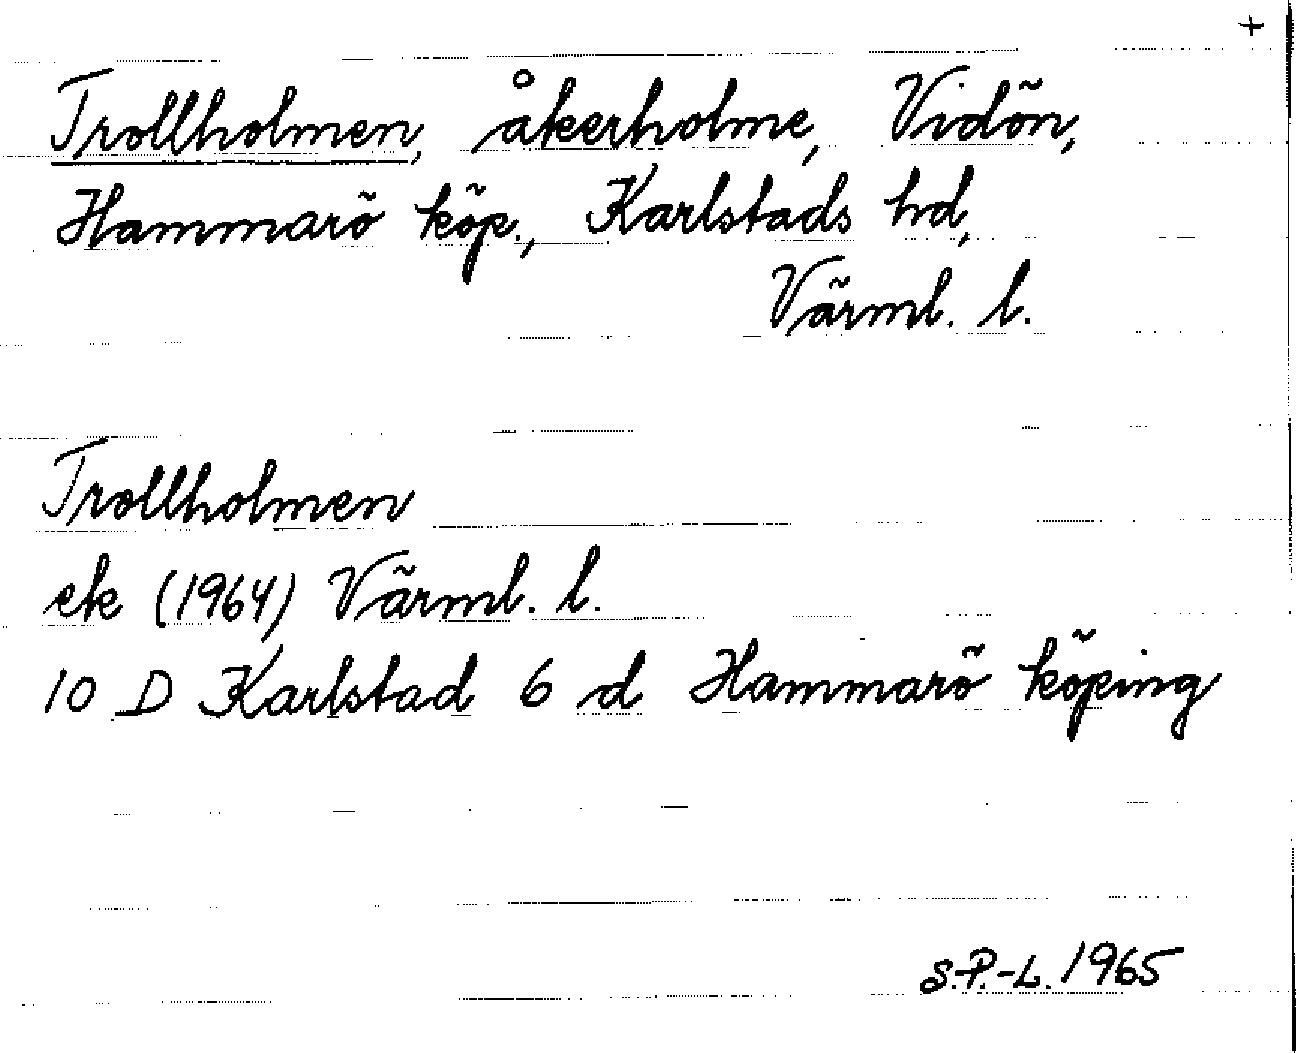 +
Trollholmen, åkerholme, Vidön,
Hammarö köp., Karlstads hd,
Värml. l.
Trollholmen
ek (1964) Värml. l.
10 D Karlstad 6 d Hammarö köping
S.P.-L. 1965